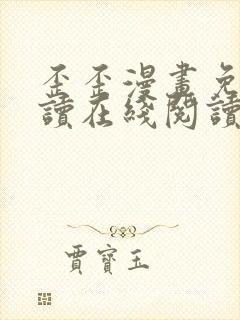 歪歪漫畫免
讀在綫閱讀
賈寶玉